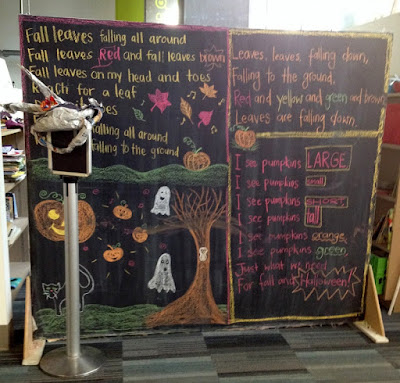 Fall leaves falling all around
Fall leaves Red and fall leaves brown
Fall leaves on my head and toes
for a leaf
falling all around
falling to the ground
Leaves, leaves, falling down,
Falling to the ground,
Red and yellow and green and brown
Leaves are falling down.
I see pumpkins LARGE,
I see pumpkins small
I see pumpkins SHORT,
I see pumpkins tall
I see pumpkins orange,
I see pumpkins green,
Just what we need
For fall and Halloween!